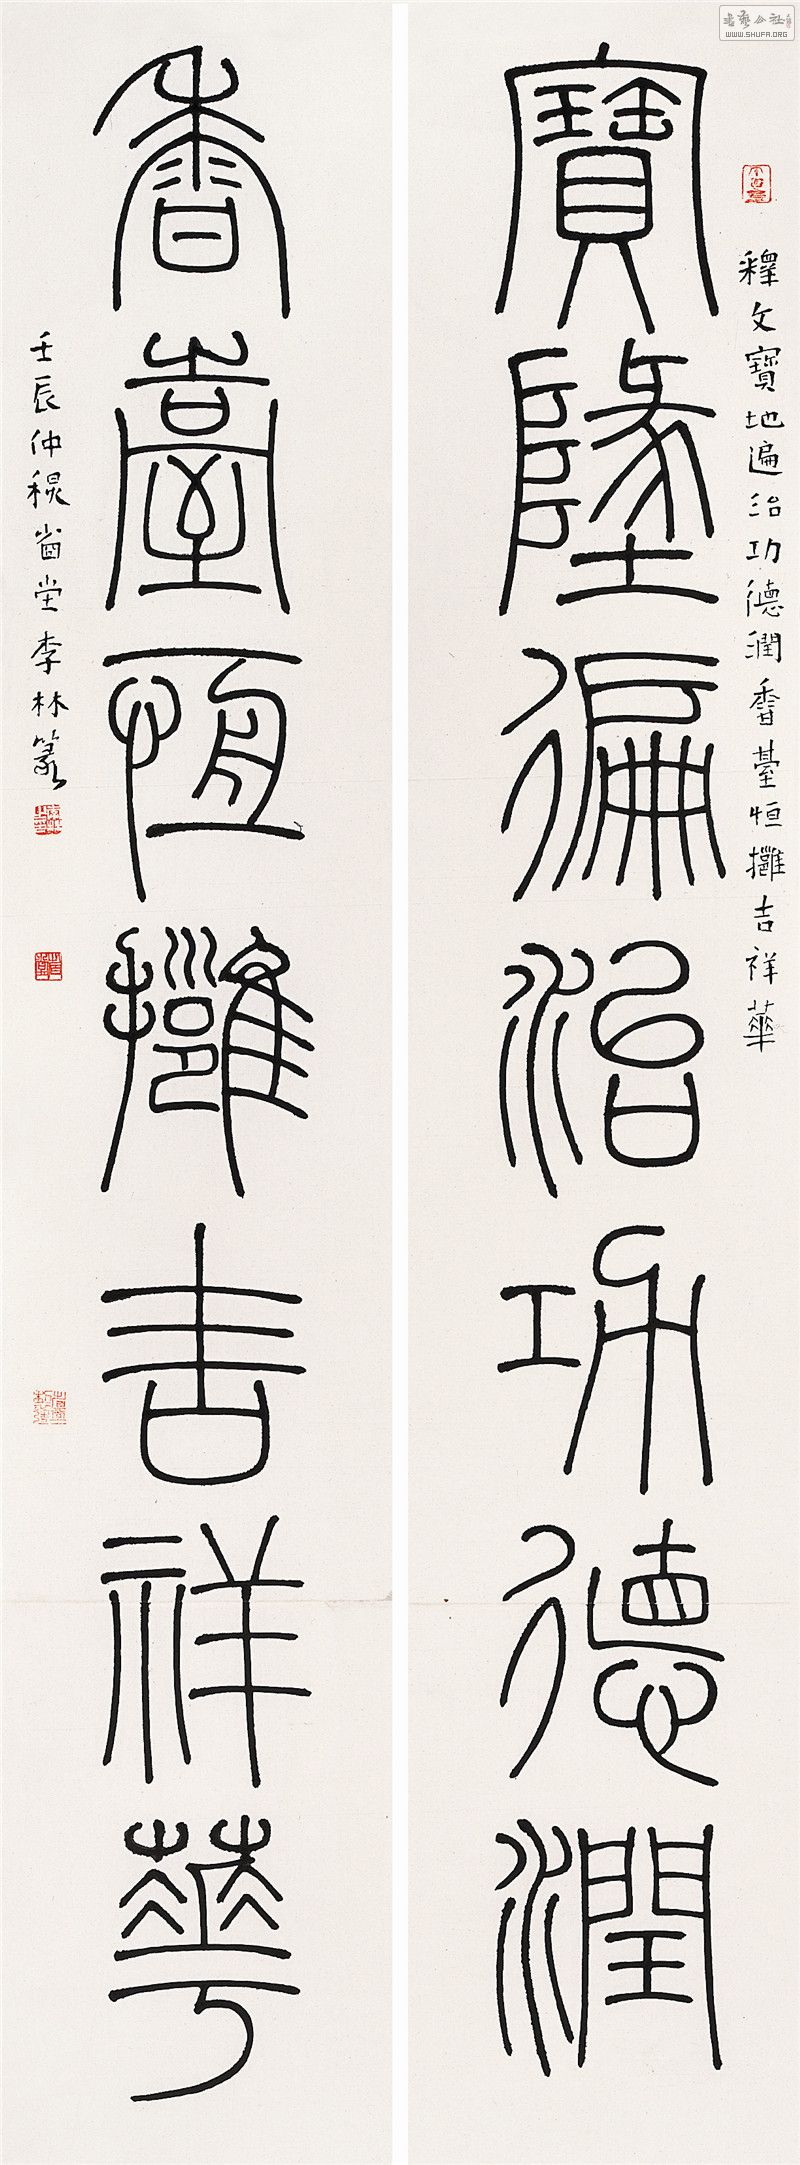 釋文寶地遍治功德潤香臺恒攤吉祥華
寶地徧治功德潤
香臺恒攤吉祥華
壬辰仲稅㟭堂李林篆
書藝公社
WWW.SHUFA.ORG